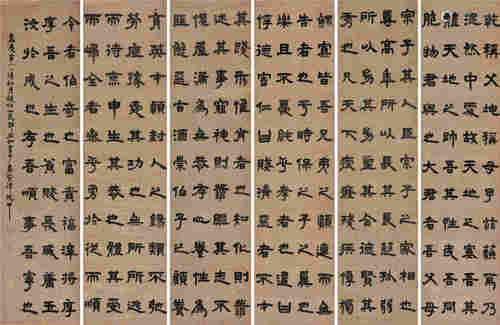 乾稱父坤稱母予茲藐焉乃
混然中處故天地之塞吾其
體天地之帥吾其性民吾同
胞物吾與也大君者吾父母
宗子其大臣宗子之家相也
尊高年所以長其長慈孤弱
所以幼其幼聖其合德賢其
秀也凡天下疲癃殘疾惸獨
鰥寡皆吾兄弟之顛連而無
告者也于時保之子之翼也
樂且不憂純乎孝者也違曰
悖德害仁曰賊濟惡者不才
其踐形惟肖者也知化則善
述其事窮神則善繼其志不
愧屋漏為無忝存心養性為
匪懈惡旨酒崇伯子之顧養
育英才潁封人之錫類不弛
勞而底豫舜其功也無所逃
而待烹申生其恭也體其受
而歸全者參乎勇於從而順
令者伯奇也富貴福澤將厚
吾之生也貧賤憂戚庸玉
汝於成也存吾順事吾寧也